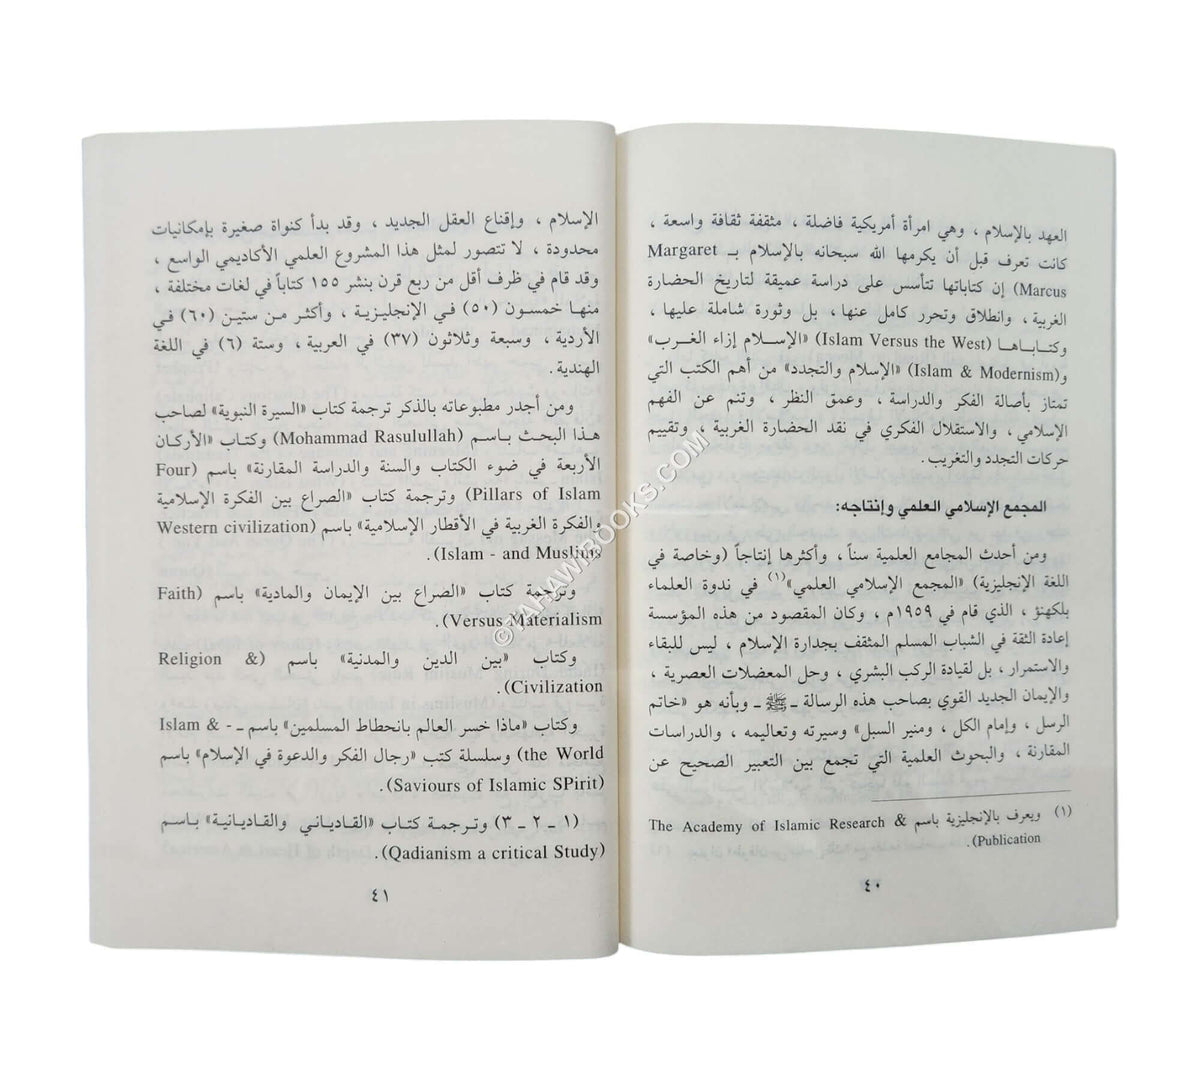 العهد بالإسلام ، وهي امرأة أمريكية فاضلة ، مثقفة ثقافة واسعة ،
كانت تعرف قبل أن يكرمها الله سبحانه بالإسلام بـ Margaret
Marcus) إن كتاباتها تتأسس على دراسة عميقة لتاريخ الحضارة
الغربية ، وانطلاق وتحرر كامل عنها، بل وثورة شاملة عليها،
وكتـابـاهـا (Islam Versus the West) «الإسـلام إزاء الغـرب»
و(Islam & Modernism) «الإسلام والتجدد» من أهم الكتب التي
تمتاز بأصالة الفكر والدراسة ، وعمق النظر ، وتنم عن الفهم
الإسلامي ، والاستقلال الفكري في نقد الحضارة الغربية ، وتقييم
حركات التجدد والتغريب .
المجمع الإسلامي العلمي وإنتاجه:
ومن أحدث المجامع العلمية سناً ، وأكثرها إنتاجاً (وخاصة في
اللغة الإنجليزية) «المجمع الإسلامي العلمي»(١) في ندوة العلماء
بلكهنؤ ، الذي قام في ١٩٥٩م ، وكان المقصود من هذه المؤسسة
إعادة الثقة في الشباب المسلم المثقف بجدارة الإسلام ، ليس للبقاء
والاستمرار ، بل لقيادة الركب البشري ، وحل المعضلات العصرية ،
والإيمان الجديد القوي بصاحب هذه الرسالة ـ ﷺ ـ وبأنه هو «خاتم
الرسل ، وإمام الكل ، ومنير السبل» وسيرته وتعاليمه ، والدراسات
المقارنة ، والبحوث العلمية التي تجمع بين التعبير الصحيح عن
(١) ويعرف بالإنجليزية باسم The Academy of Islamic Research &
Publication) .
٤٠
الإسلام ، وإقناع العقل الجديد ، وقد بدأ كنواة صغيرة بإمكانيات
محدودة ، لا تتصور لمثل هذا المشروع العلمي الأكاديمي الواسع ،
وقد قام في ظرف أقل من ربع قرن بنشر ١٥٥ كتاباً في لغات مختلفة ،
منهـا خمسـون (٥٠) في الإنجليـزيـة ، وأكثـر مـن ستيـن (٦٠) فـي
الأردية ، وسبعة وثلاثون (٣٧) في العربية ، وستة (٦) في اللغة
الهندية .
ومن أجدر مطبوعاته بالذكر ترجمة كتاب «السيرة النبوية» لصاحب
هـذا البحث بـاسم (Mohammad Rasulullah) وكتـاب «الأركـان
الأربعة في ضوء الكتاب والسنة والدراسة المقارنة» باسم (Four
Pillars of Islam) وترجمة كتاب «الصراع بين الفكرة الإسلامية
والفكرة الغربية في الأقطار الإسلامية» باسم (Western civilization
Islam - and Muslims).
وترجمة كتاب «الصراع بين الإيمان والمادية» باسم (Faith
Versus Materialism).
وكتاب «بين الدين والمدنية» باسم (Religion &
Civilization) .
وكتاب «ماذا خسر العالم بانحطاط المسلمين» باسم ـ - Islam &
the World) وسلسلة كتب «رجال الفكر والدعوة في الإسلام» باسم
(Saviours of Islamic SPirit) .
(١ ـ ٢ ـ ٣) وترجمة كتاب «القادياني والقاديانية» باسم
(Qadianism a critical Study) .
٤١
©TAHAWIBOOKS.COM